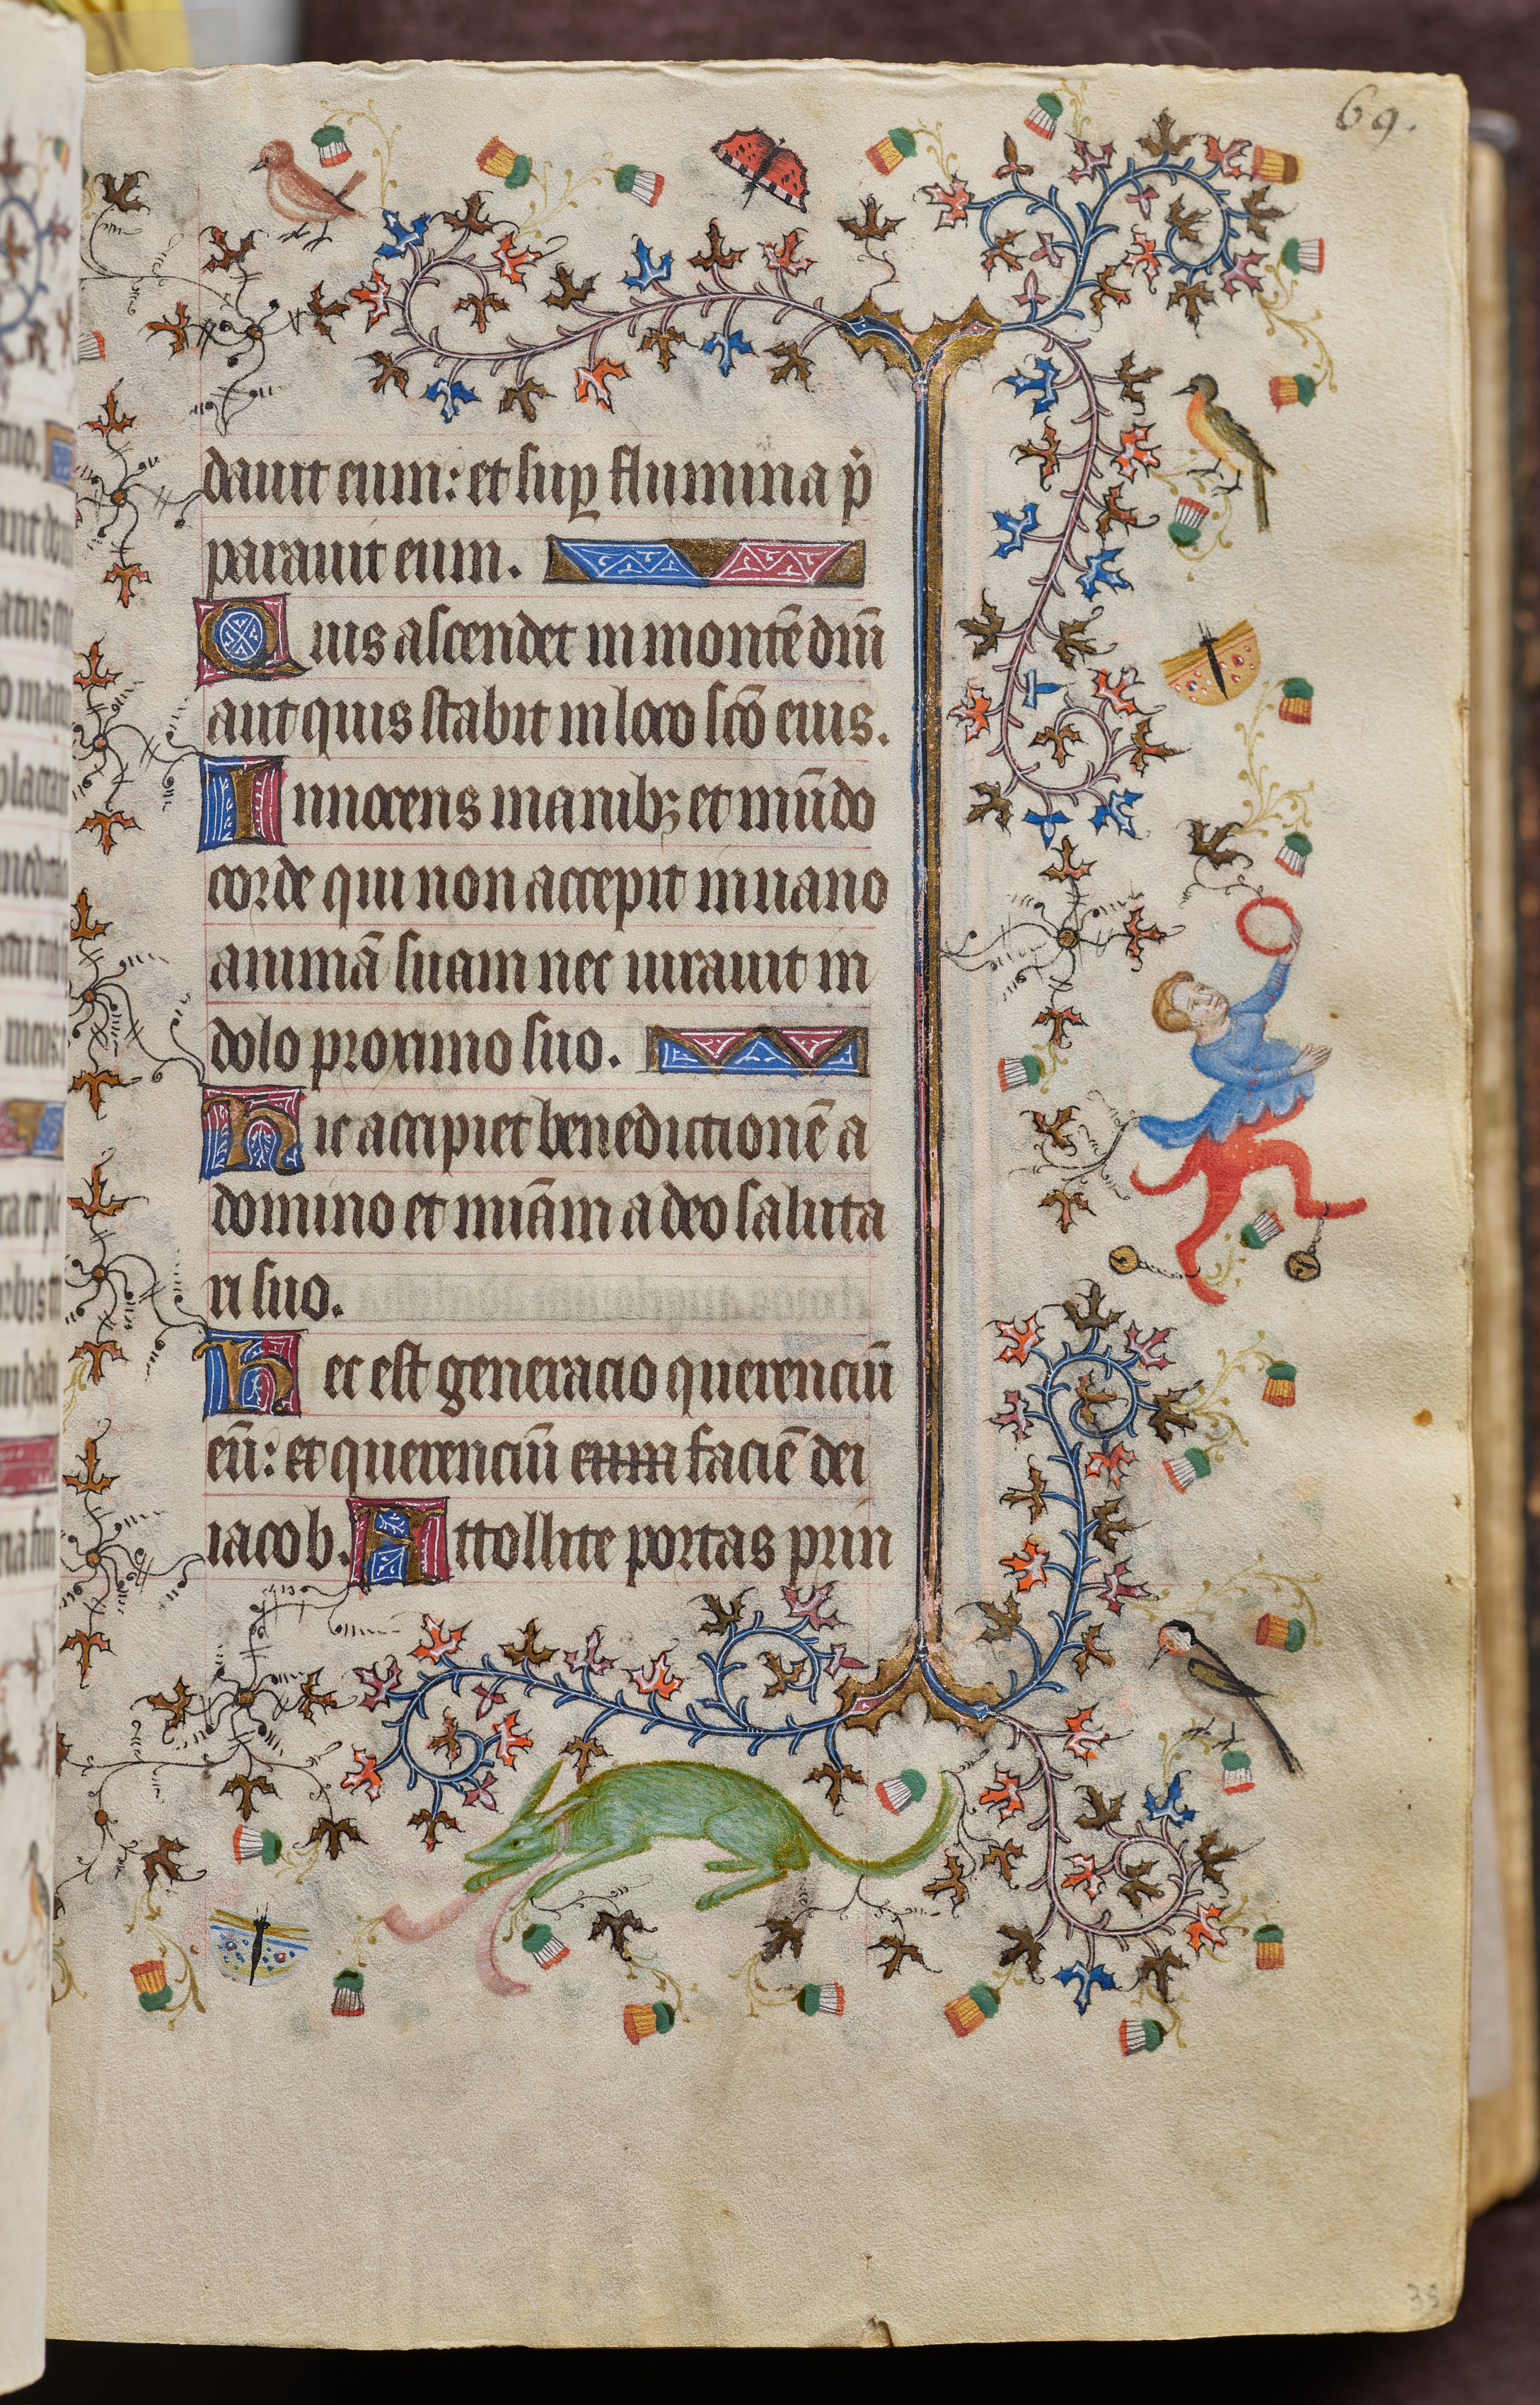 69.
dauit eum: et sup̱ flumina p̄
parauit eum.
Quis ascendet in montē dn̄i
aut quis stabit in loco scō eius.
Innocens manibꝫ et mūdo
corde qui non accepit in uano
animā suam nec iurauit in
dolo proximo suo.
hic accipiet benedictionē a
domino et miām a deo saluta
ri suo.
hec est generacio querenciū
eū: et querenciū eum faciē dei
iacob. Attollite portas prin
35